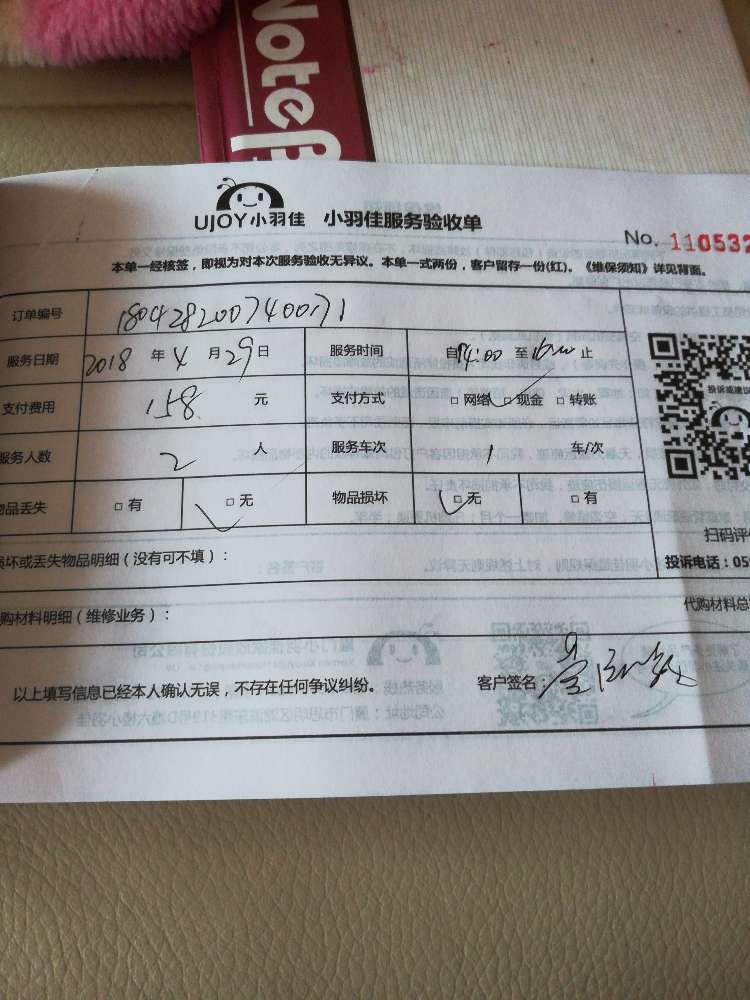 Note
UJOY小羽佳 小羽佳服务验收单
No. 110532
本单一经核签，即视为对本次服务验收无异议。本单一式两份，客户留存一份(红)。《维保须知》详见背面。
订单编号 1804282007400171
服务日期 2018 年 4 月 29 日 服务时间 自14:00 至16:00 止
支付费用 158 元 支付方式 □ 网络 □ 现金 □ 转账
服务人数 2 人 服务车次 1 车/次
物品丢失 □ 有 □ 无 物品损坏 □ 无 □ 有
投诉或建议
扫码评
坏或丢失物品明细（没有可不填）：
投诉电话：05
购材料明细（维修业务）：
代购材料总
以上填写信息已经本人确认无误，不存在任何争议纠纷。 客户签名：